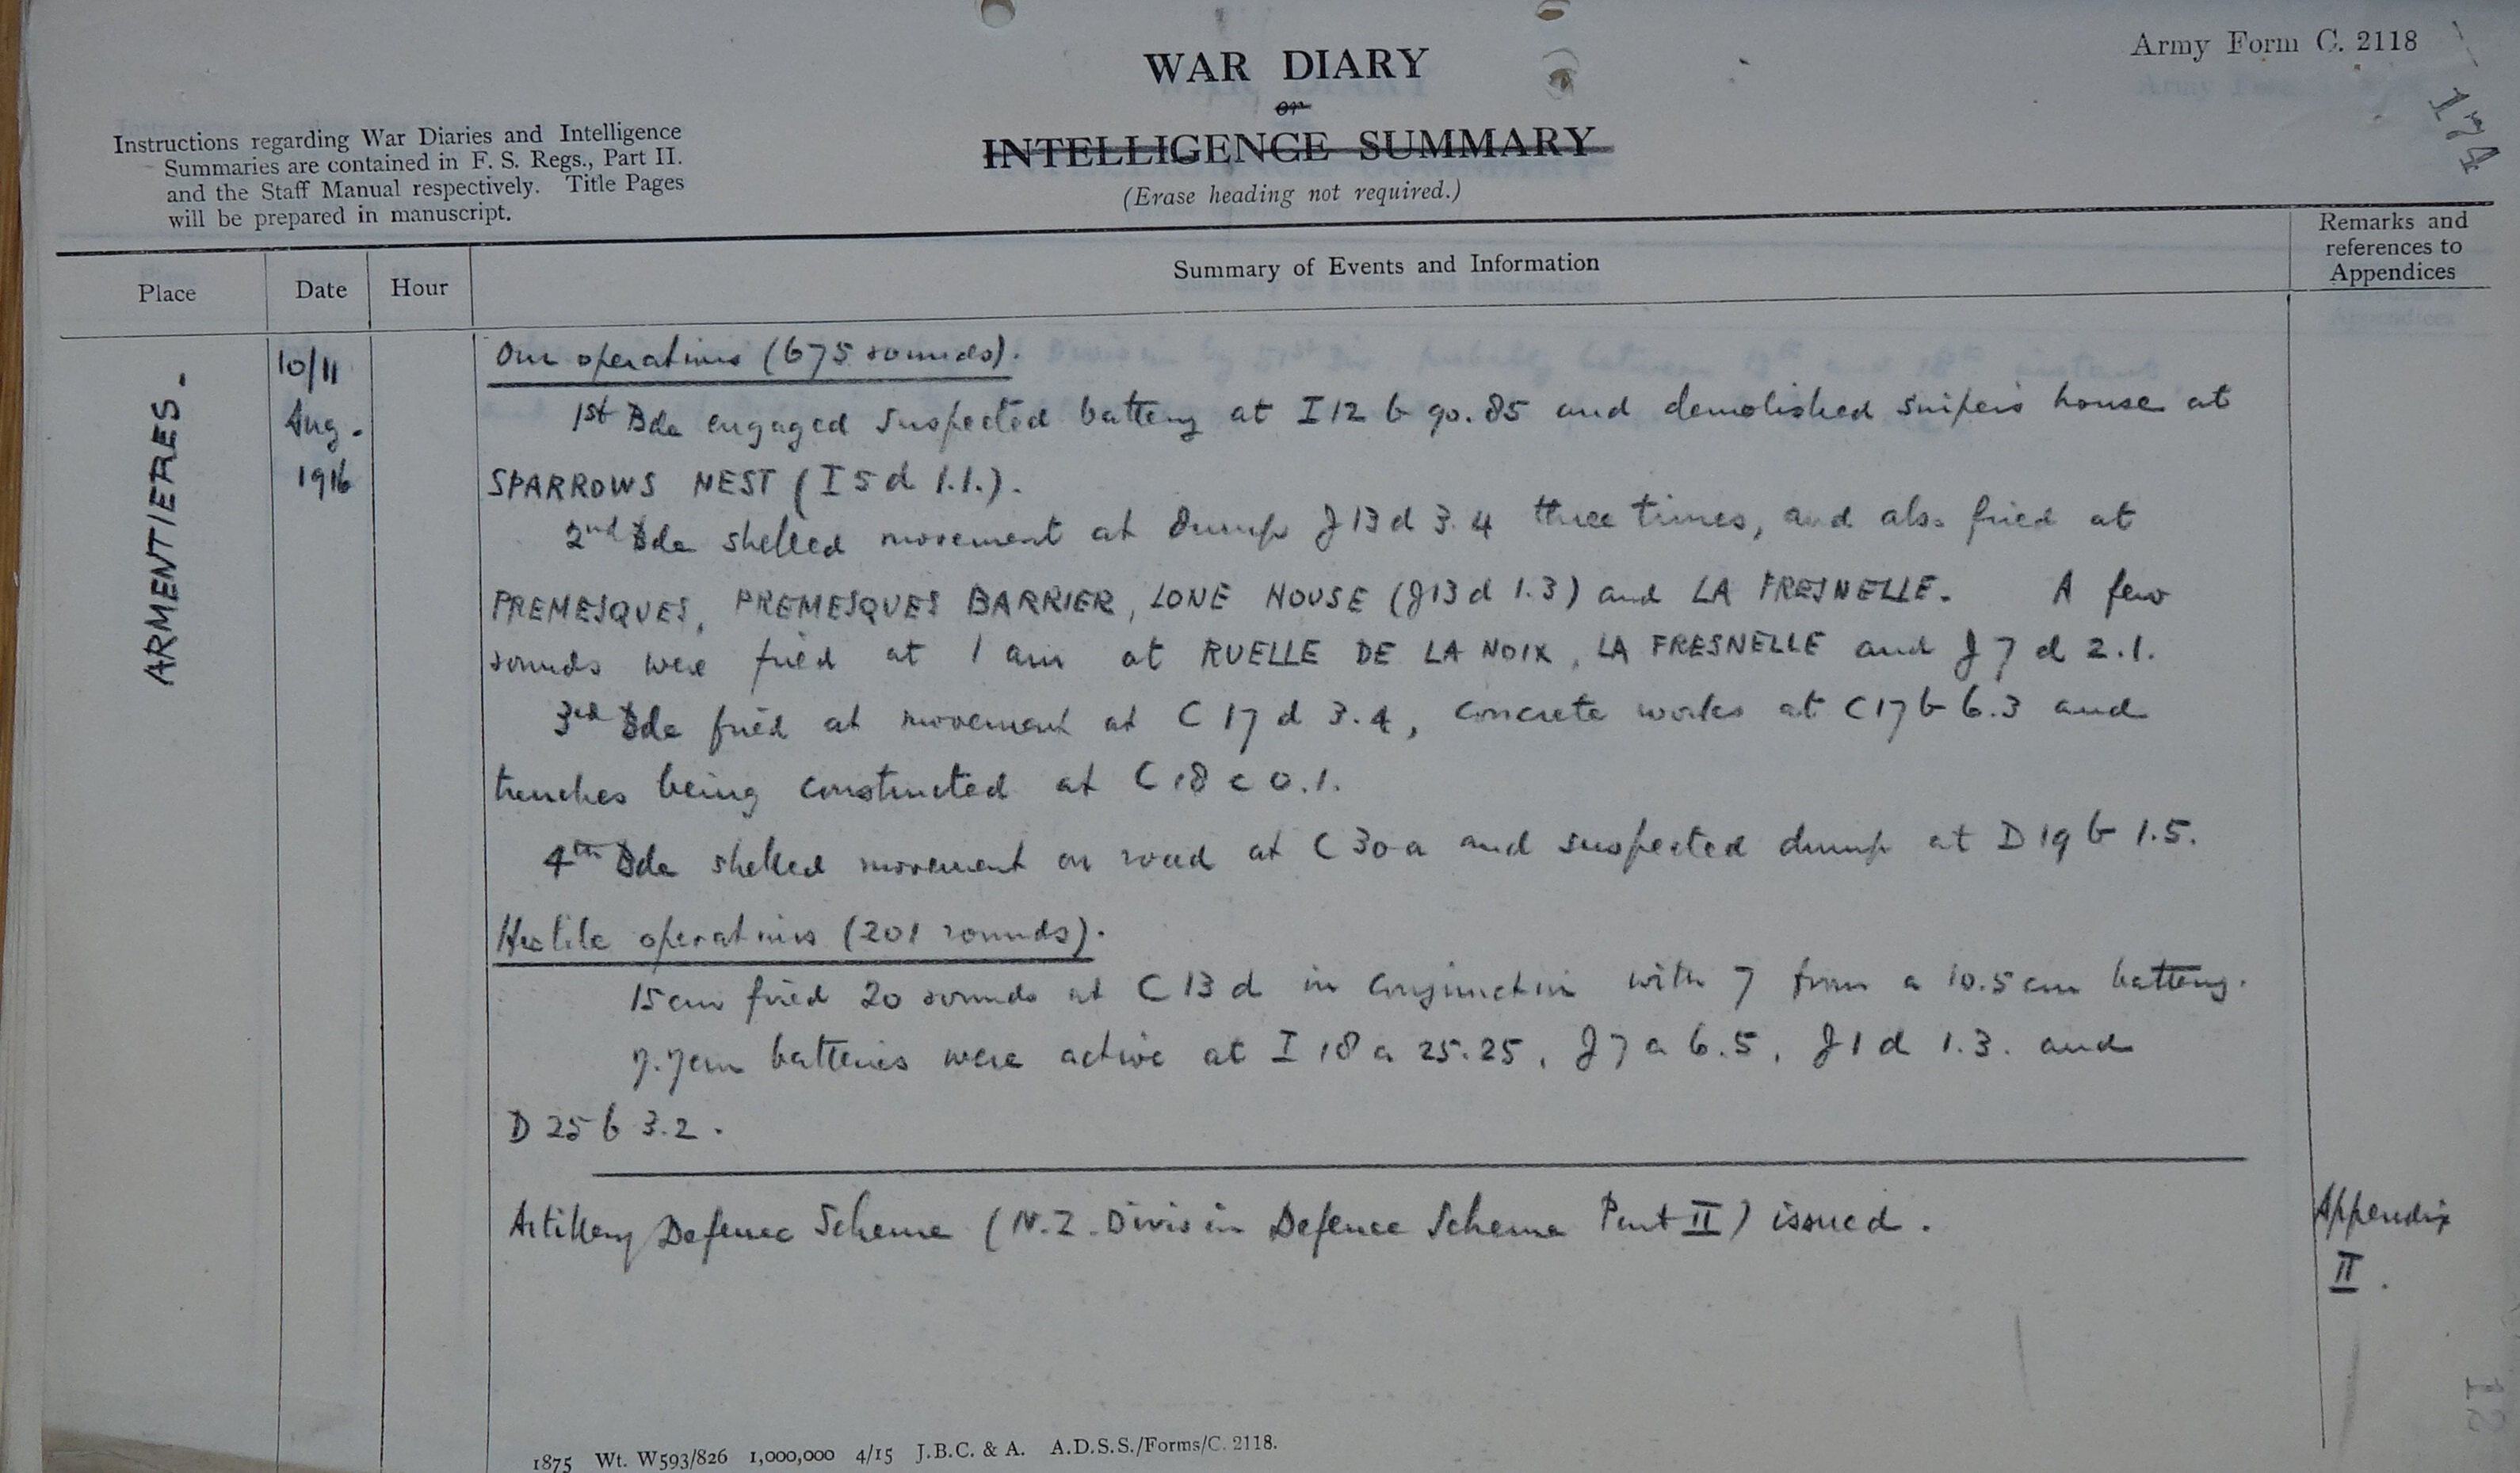 Army Form C. 2118
174
WAR DIARY
or
INTELLIGENCE SUMMARY
(Erase heading not required.)
Instructions regarding War Diaries and Intelligence
Summaries are contained in F. S. Regs., Part II.
and the Staff Manual respectively. Title Pages
will be prepared in manuscript.
Place
Date
Hour
Summary of Events and Information
Remarks and
references to
Appendices
ARMENTIERES.
10/11
Aug.
1916
Our operations (675 rounds).
1st Bde engaged suspected battery at I 12 b 90.85 and demolished snipers house at
SPARROWS NEST (I 5 d 1.1.).
2nd Bde shelled movement at dump J 13 d 3.4 three times, and also fired at
PREMESQUES, PREMESQUES BARRIER, LONE HOUSE (J 13 d 1.3) and LA FRESNELLE. A few
rounds were fired at 1 am at RUELLE DE LA NOIX, LA FRESNELLE and J 7 d 2.1.
3rd Bde fired at movement at C 17 d 3.4, concrete works at C 17 b 6.3 and
trenches being constructed at C 18 c 0.1.
4th Bde shelled movement on road at C 30 a and suspected dump at D 19 b 1.5.
Hostile operations (201 rounds).
15 cm fired 20 rounds at C 13 d in conjunction with 7 from a 10.5 cm battery.
7.7 cm batteries were active at I 18 a 25.25, J 7 a 6.5, J 1 d 1.3. and
D 25 b 3.2.
Artillery Defence Scheme (N.Z. Division Defence Scheme Part II) issued.
Appendix
II.
12
1875 Wt. W593/826 1,000,000 4/15 J.B.C. & A. A.D.S.S./Forms/C. 2118.